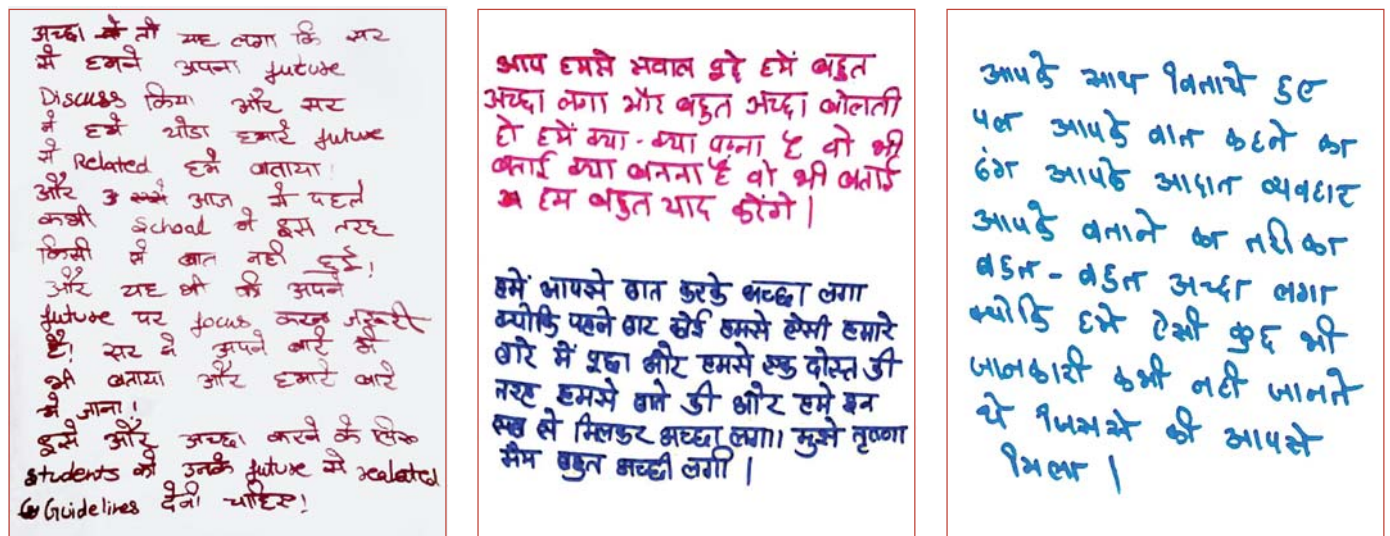 अच्छा तो यह लगा कि सर
से हमने अपना future
Discuss किया और सर
ने हमे थोडा हमारे future
से Related हमे बताया!
और आज से पहले
कभी School ने इस तरह
किसी से बात नही हुई!
और यह भी की अपने
future पर focus करना जरूरी
है! सर ने अपने बारे मे
भी बताया और हमारे बारे
मे जाना!
इसे और अच्छा करने के लिए
students को उनके future से realated
Guidelines देनी चाहिए!
आप हमसे सवाल पूछे हमें बहुत
अच्छा लगा और बहुत अच्छा बोलती
हो हमें क्या-क्या है वो भी
बताई क्या बनना है वो भी बताई
हम बहुत याद करेंगे।
हमें आपसे बात करके अच्छा लगा
क्योकि पहने बार कोई हमसे ऐसी हमारे
बारे में पूछा और हमसे एक दोस्त की
तरह हमसे बाते की और हमे इन
से मिलकर अच्छा लगा। मुझे तृष्णा
मैम बहुत अच्छी लगी।
आपके साथ बिताये हुए
पल आपके बात कहने का
ढंग आपके आदात व्यवहार
आपके बताने का तरीका
बहुत-बहुत अच्छा लगा
क्योकि हमे ऐसी कुछ भी
जानकारी कभी नही जानते
थे जिससे की आपसे
मिला।